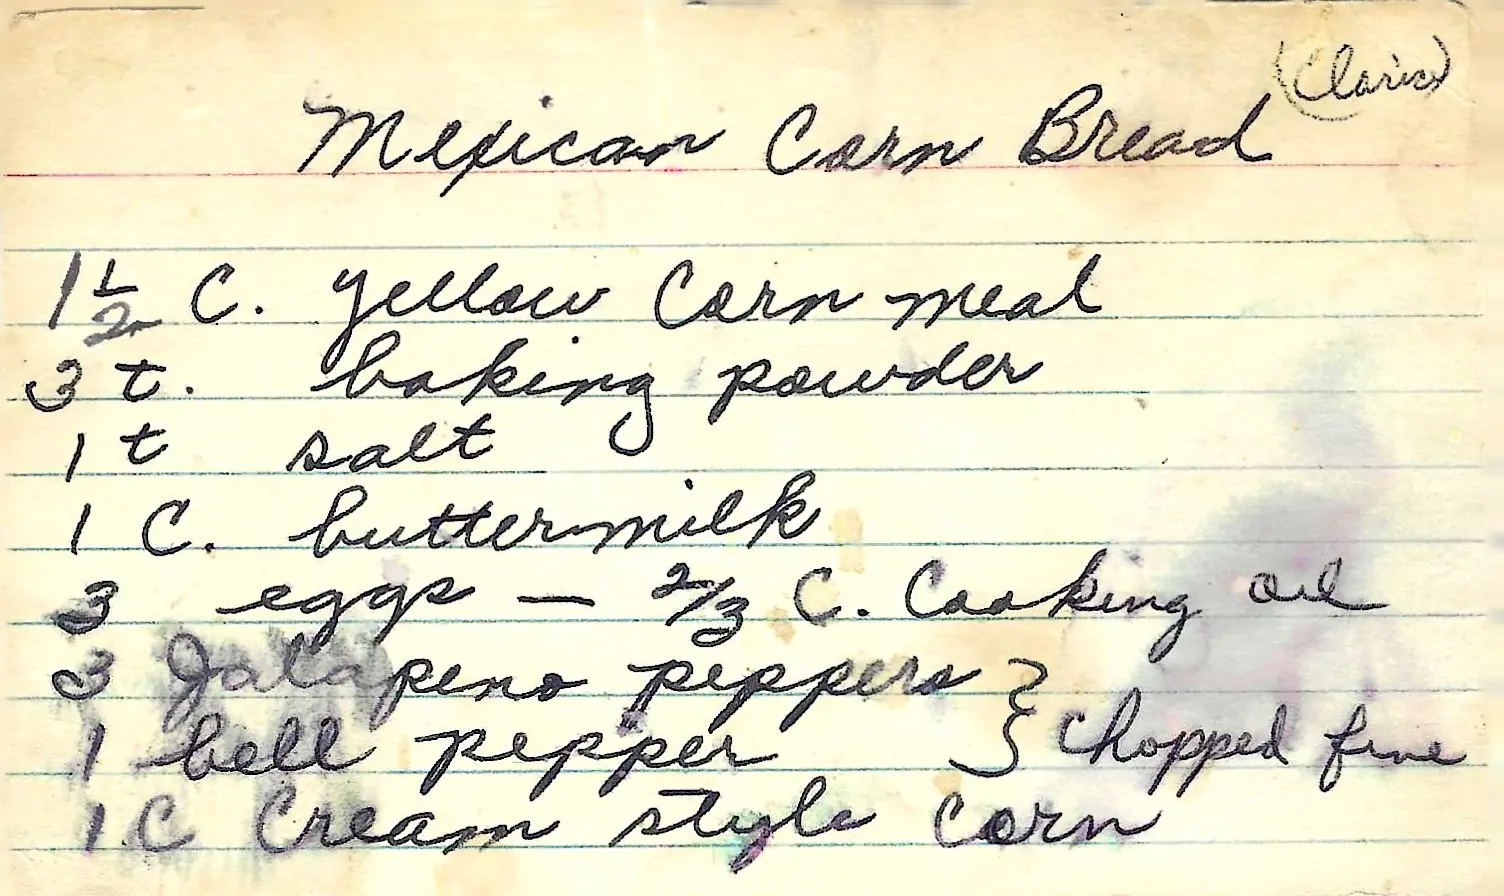 (Claris)
Mexican Corn Bread
1 1/2 C. yellow Corn meal
3 t. baking powder
1 t salt
1 C. buttermilk
3 eggs — 2/3 C. Cooking oil
3 Jalapeno peppers } chopped fine
1 bell pepper
1 C Cream style corn